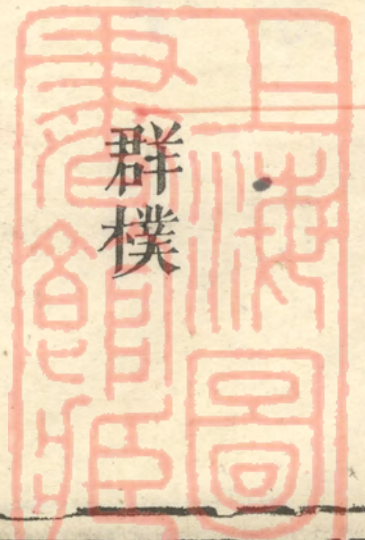 上海圖
書館藏
群樸